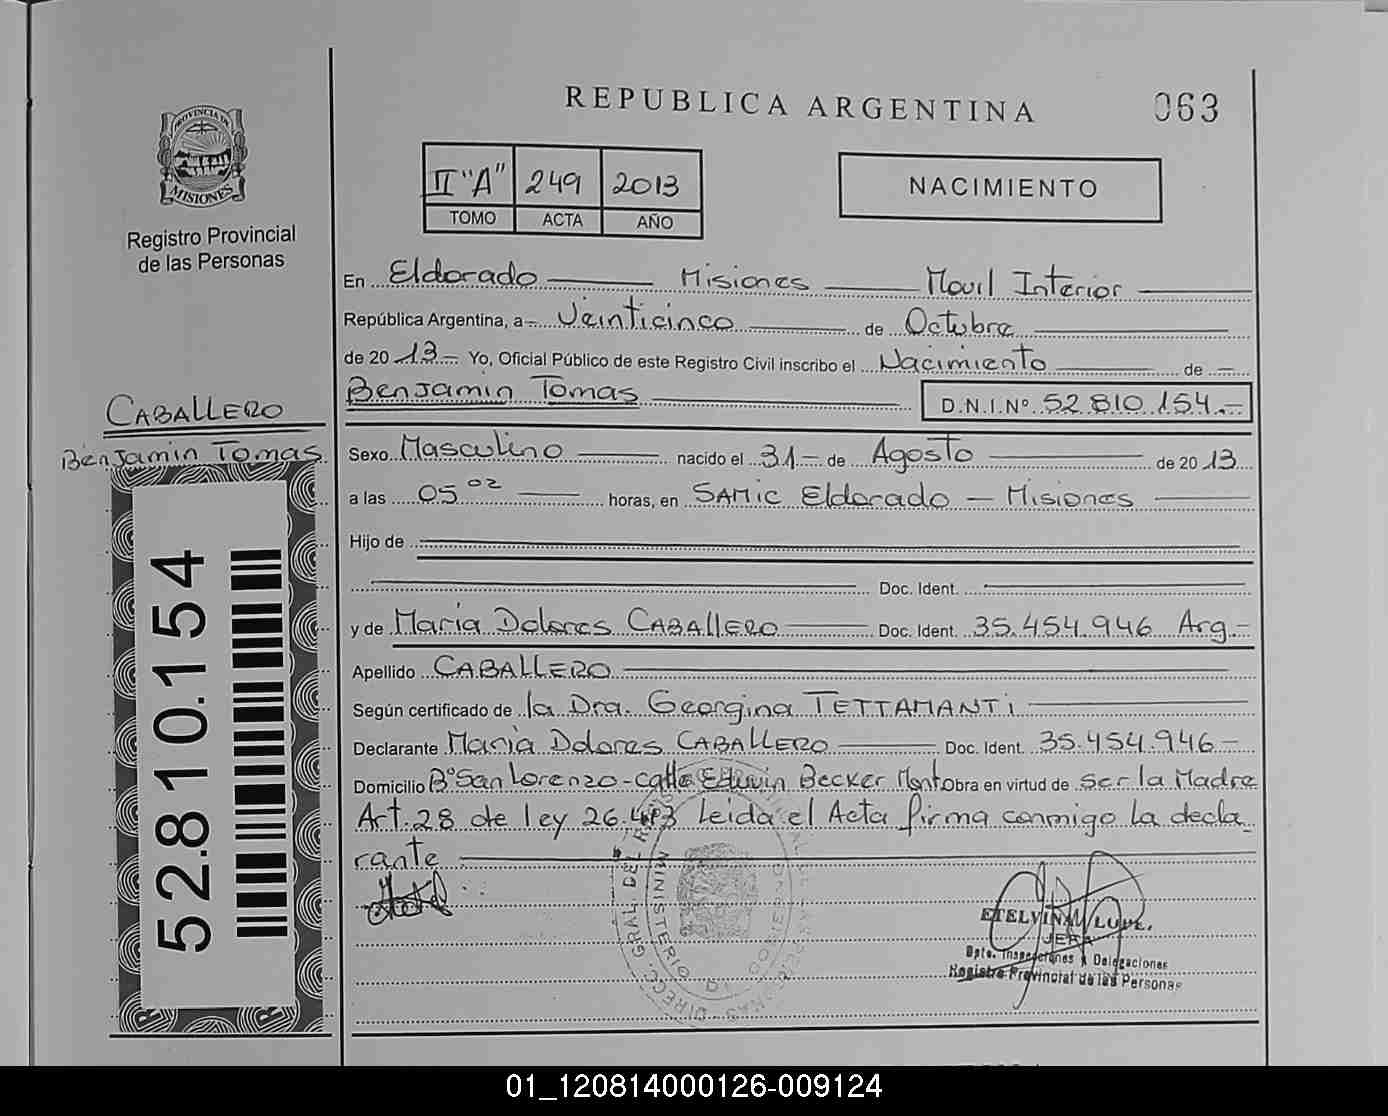 REPUBLICA ARGENTINA
063
PROVINCIA DE
MISIONES
Registro Provincial
de las Personas
II "A" 249 2013
TOMO ACTA AÑO
NACIMIENTO
En Eldorado Misiones Movil Interior
República Argentina, a Veinticinco de Octubre
de 20 13 Yo, Oficial Público de este Registro Civil inscribo el Nacimiento de
Benjamin Tomas D.N.I.Nº 52.810.154.-
CABALLERO
Benjamin Tomas
Sexo Masculino nacido el 31 de Agosto de 20 13
a las 05 02 horas, en SAMIC Eldorado - Misiones
Hijo de
Doc. Ident.
y de Maria Dolores CABALLERO Doc. Ident. 35.454.946 Arg.-
Apellido CABALLERO
Según certificado de la Dra. Georgina TETTAMANTI
Declarante Maria Dolores CABALLERO Doc. Ident. 35.454.946-
Domicilio Bº San Lorenzo - calle Edwin Becker Mont Obra en virtud de ser la Madre
Art. 28 de ley 26.413 Leida el Acta firma conmigo la decla
rante
52.810.154
DIRECC. GRAL. DEL
MINISTERIO D
GOBIERNO
ETELVINA LUPE.
JEFA
Dpto. Inspecciones y Delegaciones
Registro Provincial de las Personas
01_120814000126-009124